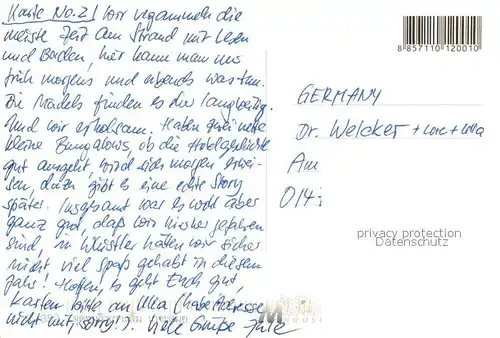 Karte No. 2! Wir vergammeln die
meiste Zeit am Strand mit Lesen
und Baden, hier kann man nur
früh morgens und abends was tun.
Die Mädels finden es eher langweilig.
Und wir erholsam. Haben zwei nette
kleine Bungalows, ob die Hotelgeschichte
gut ausgeht, wird sich morgen erwei-
sen, dazu gibt es eine echte Story
später. Insgesamt war es wohl aber
ganz gut, daß wir hierher gefahren
sind, in Whistler hätten wir sicher
nicht viel Spaß gehabt in diesem
Jahr! Hoffen, es geht Euch gut,
Karten bitte an Ulla (habe Adresse
nicht mit, sorry!). Viele Grüße
8 857110 120010
GERMANY
Dr. Welcker + Lore +
Am
014
privacy protection
Datenschutz